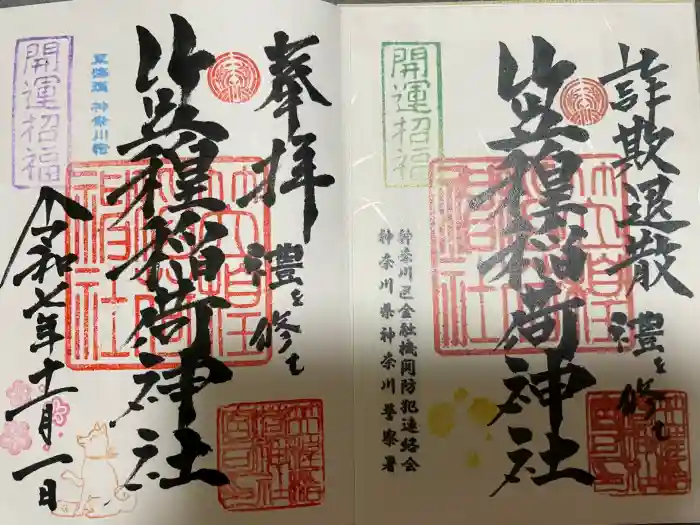 奉拝
禮を修
笠䅣稲荷神社
東海道 神奈川宿
開運招福
令和七年十一月一日
詐欺退散
禮を修
笠䅣稲荷神社
開運招福
神奈川区金融機関防犯連絡会
神奈川県神奈川警察署